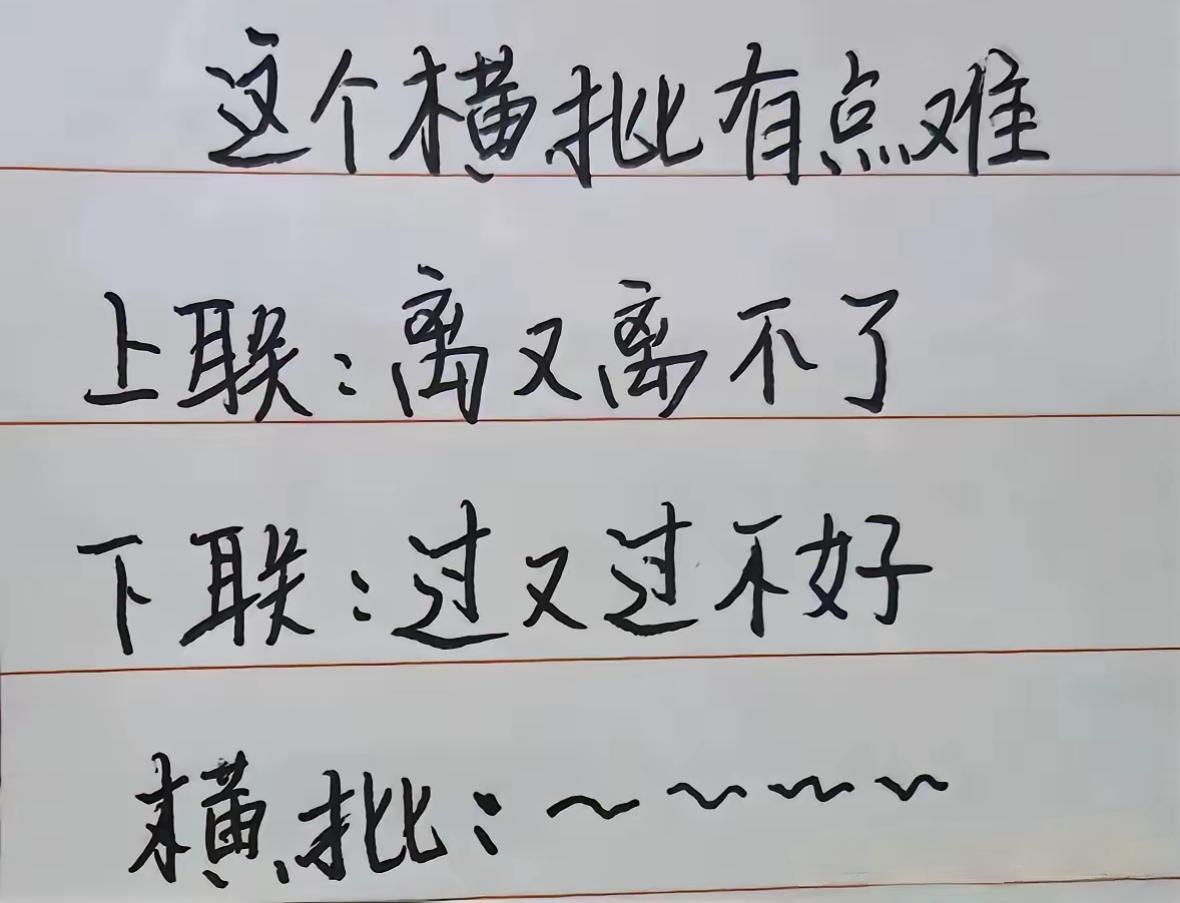 这个横批有点难
上联:离又离不了
下联:过又过不好
横批:~~~~